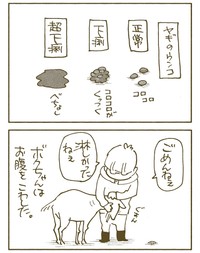 ヤギのウンコ
正常
コロコロ
下痢
コロコロが
くっつく
超下痢
べちなし
ごめんねぇ
淋しかった
ねぇ
ボクちゃんは
お腹をこわした。